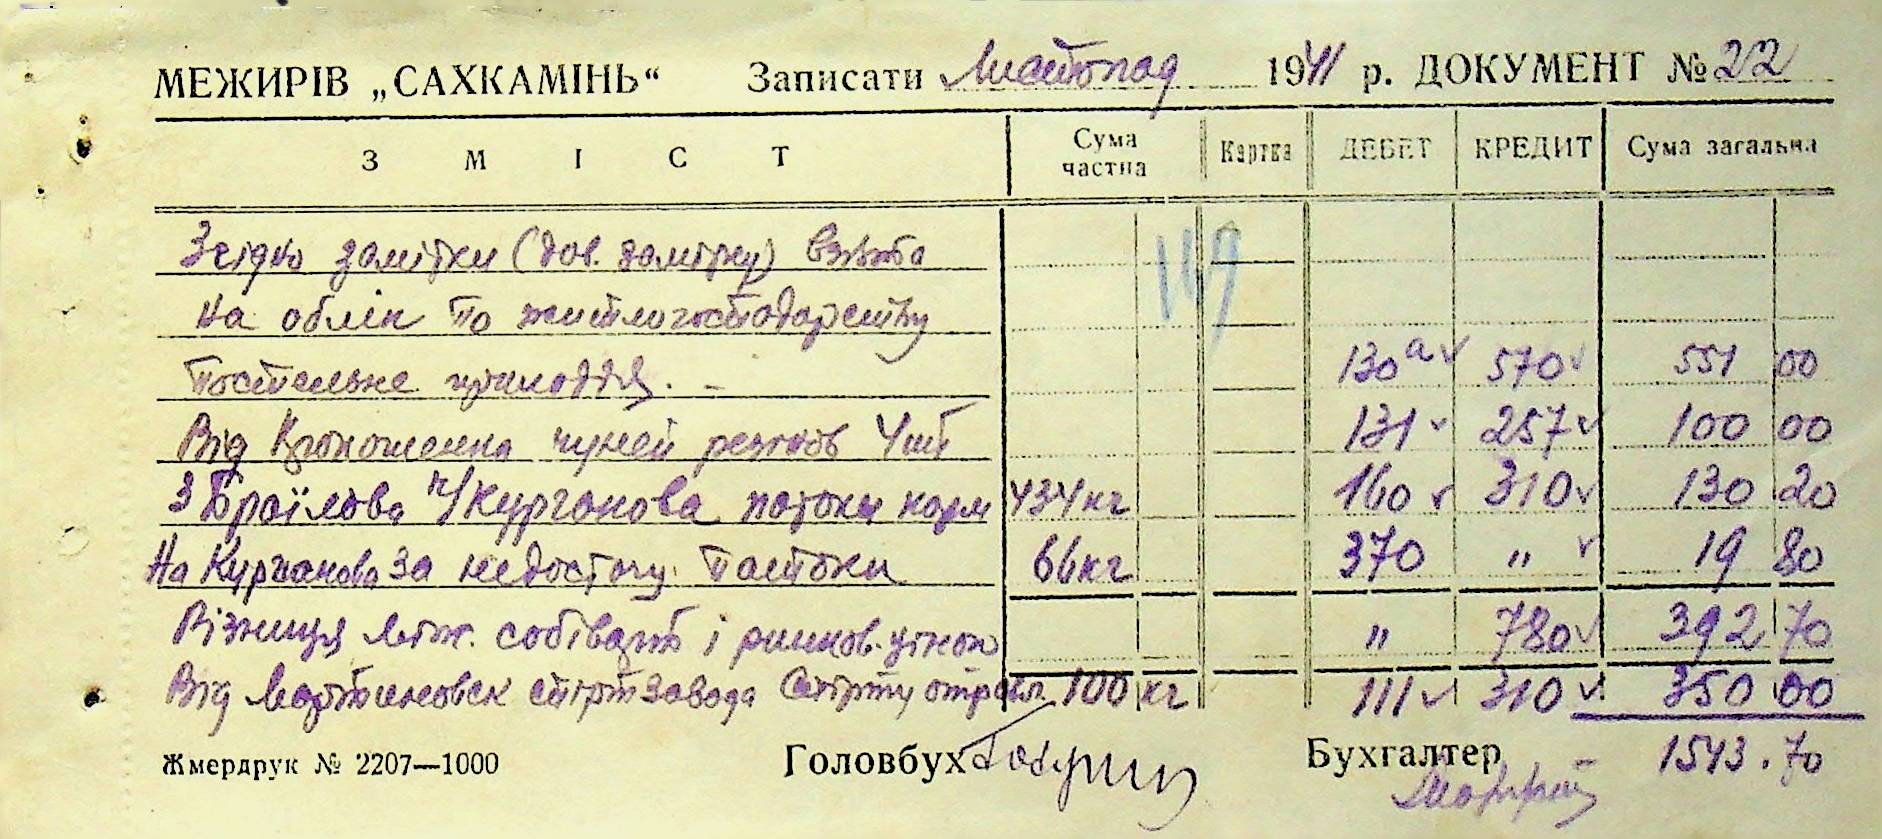 МЕЖИРІВ „САХКАМІНЬ“ Записати Листопад 1941 р. ДОКУМЕНТ № 22
ЗМІСТ Сума частна Картка ДЕБЕТ КРЕДИТ Сума загальна
Згідно замітки (дов. замірку) взято 149
на облік по житлогосподарству
постельне приладдя. - 130а 570 551 00
Від Кononenka 131 257 100 00
З Браїлова ч/Курганова патоки корм 434 кг 160 310 130 20
На Курганова за недостачу патоки 66 кг 370 " 19 80
Різниця між. собіварт і ринков. ціною " 780 392 70
Від Мартиновск спіртзавода Спірту 100 кг 111 310 350 00
Жмердрук № 2207—1000 Головбух Бухгалтер 1543.70